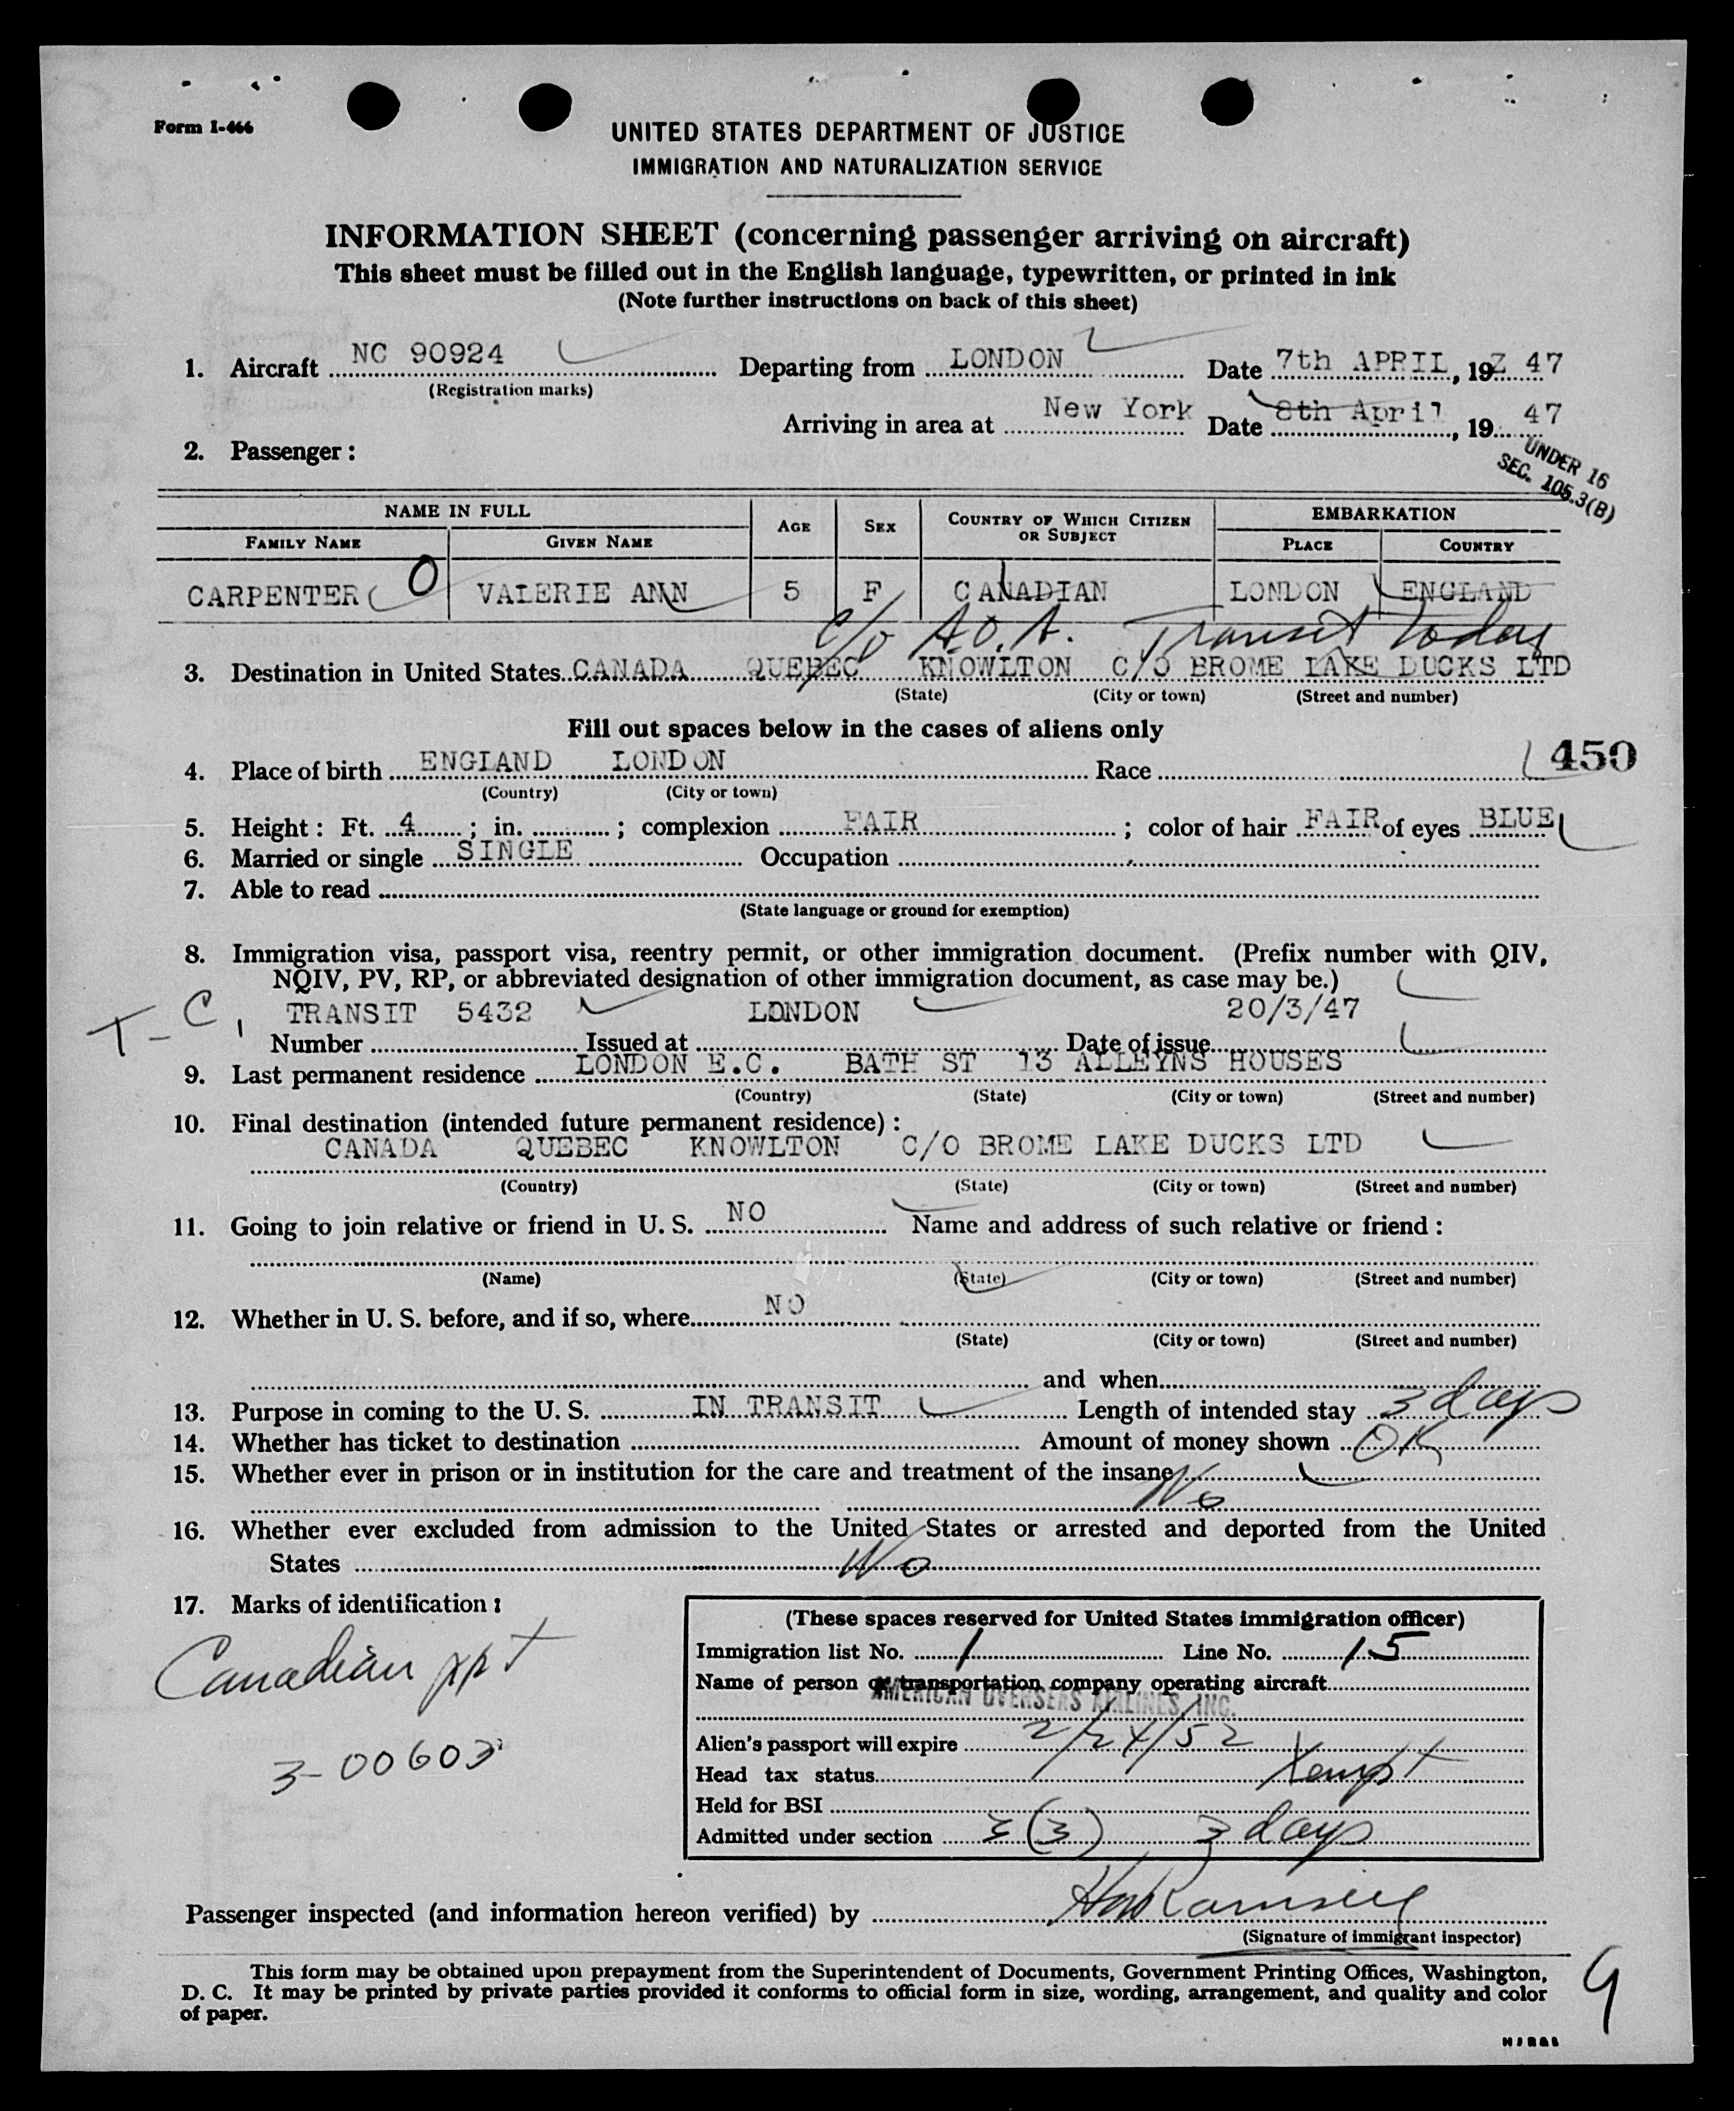 Form I-466
UNITED STATES DEPARTMENT OF JUSTICE
IMMIGRATION AND NATURALIZATION SERVICE
INFORMATION SHEET (concerning passenger arriving on aircraft)
This sheet must be filled out in the English language, typewritten, or printed in ink
(Note further instructions on back of this sheet)
1. Aircraft NC 90924 Departing from LONDON Date 7th APRIL, 19 47
(Registration marks)
Arriving in area at New York Date 8th April, 19 47
2. Passenger:
UNDER 16
SEC. 105.3(B)
NAME IN FULL AGE SEX COUNTRY OF WHICH CITIZEN OR SUBJECT EMBARKATION
FAMILY NAME GIVEN NAME PLACE COUNTRY
CARPENTER O VALERIE ANN 5 F CANADIAN LONDON ENGLAND
c/o A.O.A. Transit today
3. Destination in United States CANADA QUEBEC KNOWLTON C/O BROME LAKE DUCKS LTD
(State) (City or town) (Street and number)
Fill out spaces below in the cases of aliens only
4. Place of birth ENGLAND LONDON Race 450
(Country) (City or town)
5. Height: Ft. 4; in. ; complexion FAIR; color of hair FAIR of eyes BLUE
6. Married or single SINGLE Occupation
7. Able to read
(State language or ground for exemption)
8. Immigration visa, passport visa, reentry permit, or other immigration document. (Prefix number with QIV,
NQIV, PV, RP, or abbreviated designation of other immigration document, as case may be.)
T-C, TRANSIT 5432 LONDON 20/3/47
Number Issued at Date of issue
9. Last permanent residence LONDON E.C. BATH ST 13 ALLEYNS HOUSES
(Country) (State) (City or town) (Street and number)
10. Final destination (intended future permanent residence):
CANADA QUEBEC KNOWLTON C/O BROME LAKE DUCKS LTD
(Country) (State) (City or town) (Street and number)
11. Going to join relative or friend in U. S. NO Name and address of such relative or friend:
(Name) (State) (City or town) (Street and number)
12. Whether in U. S. before, and if so, where NO
(State) (City or town) (Street and number)
and when
13. Purpose in coming to the U. S. IN TRANSIT Length of intended stay 3 days
14. Whether has ticket to destination Amount of money shown OK
15. Whether ever in prison or in institution for the care and treatment of the insane
No
16. Whether ever excluded from admission to the United States or arrested and deported from the United
States No
17. Marks of identification:
Canadian ppt
3-00603
(These spaces reserved for United States immigration officer)
Immigration list No. 1 Line No. 15
Name of person or transportation company operating aircraft
AMERICAN OVERSEAS AIRLINES, INC.
Alien's passport will expire 2/24/52
Head tax status Xempt
Held for BSI
Admitted under section 3(3) 3 days
Passenger inspected (and information hereon verified) by
(Signature of immigrant inspector)
This form may be obtained upon prepayment from the Superintendent of Documents, Government Printing Offices, Washington,
D. C. It may be printed by private parties provided it conforms to official form in size, wording, arrangement, and quality and color
of paper.
9